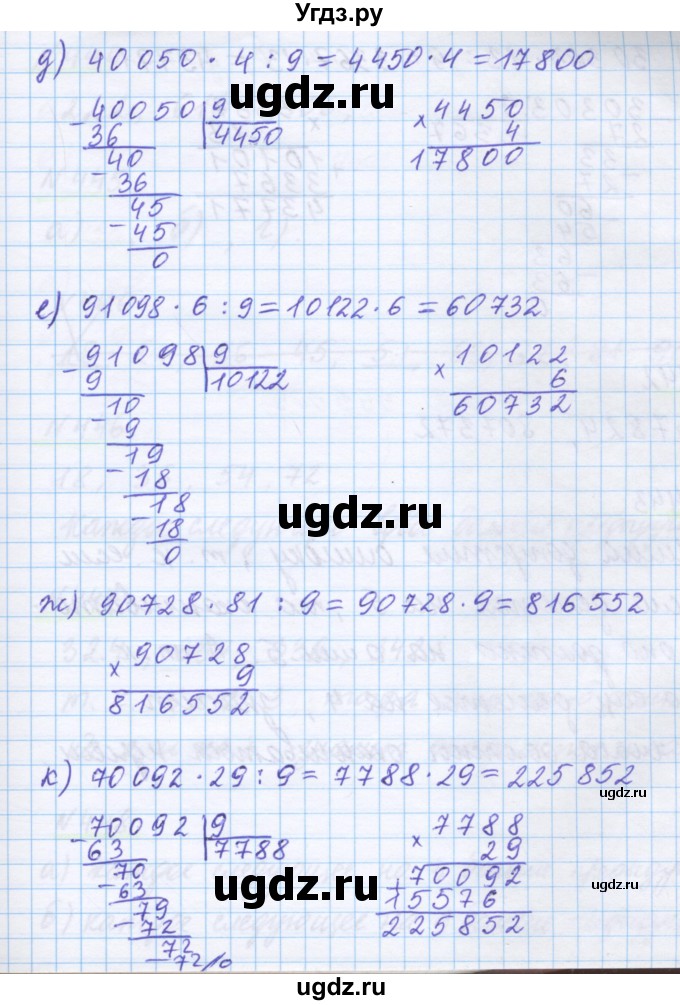 Угдз.ру
д) 40050 · 4 : 9 = 4450 · 4 = 17800
ugdz.ru
- 40050 | 9
36 | 4450
- 40
36
- 45
45
0
× 4450
4
17800
ugdz.ru
е) 91098 · 6 : 9 = 10122 · 6 = 60732
- 91098 | 9
9 | 10122
- 10
9
- 19
18
- 18
18
0
× 10122
6
60732
ugdz.ru
ж) 90728 · 81 : 9 = 90728 · 9 = 816552
× 90728
9
816552
ugdz.ru
к) 70092 · 29 : 9 = 7788 · 29 = 225852
ugdz.ru
- 70092 | 9
63 | 7788
- 70
63
- 79
72
- 72
72/0
× 7788
29
+ 70092
15576
225852
ugdz.ru
ugdz.ru
ugdz.ru